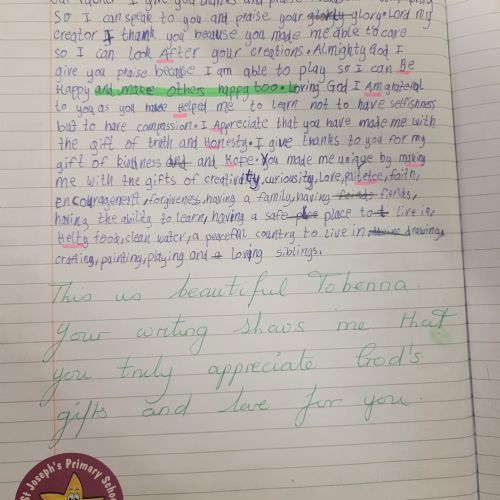 So I can speak to you and praise your glory glory. Lord my
creator I thank you because you made me able to care
so I can look After your creations. Almighty God I
give you praise because I am able to play so I can Be
Happy and make others happy too. Loving God I am grateful
to you as you have Helped me to learn not to have selfishness
but to have compassion. I Appreciate that you have made me with
the gift of truth and Honesty. I give thanks to you for my
gift of kindness and and Hope. You made me unique by making
me with the gifts of creativity, curiousity, love, patetce, faith,
encouragement, forgiveness, having a family, having feinds fiends,
having the ability to learn, having a safe plce place to t live in,
Helty food, clean water, a peaceful country to live in drawing,
crafting, painting, playing and a loving siblings.
This is beautiful Tobenna.
Your writing shows me that
you truly appreciate God's
gifts and love for you.
St Joseph's Primary School